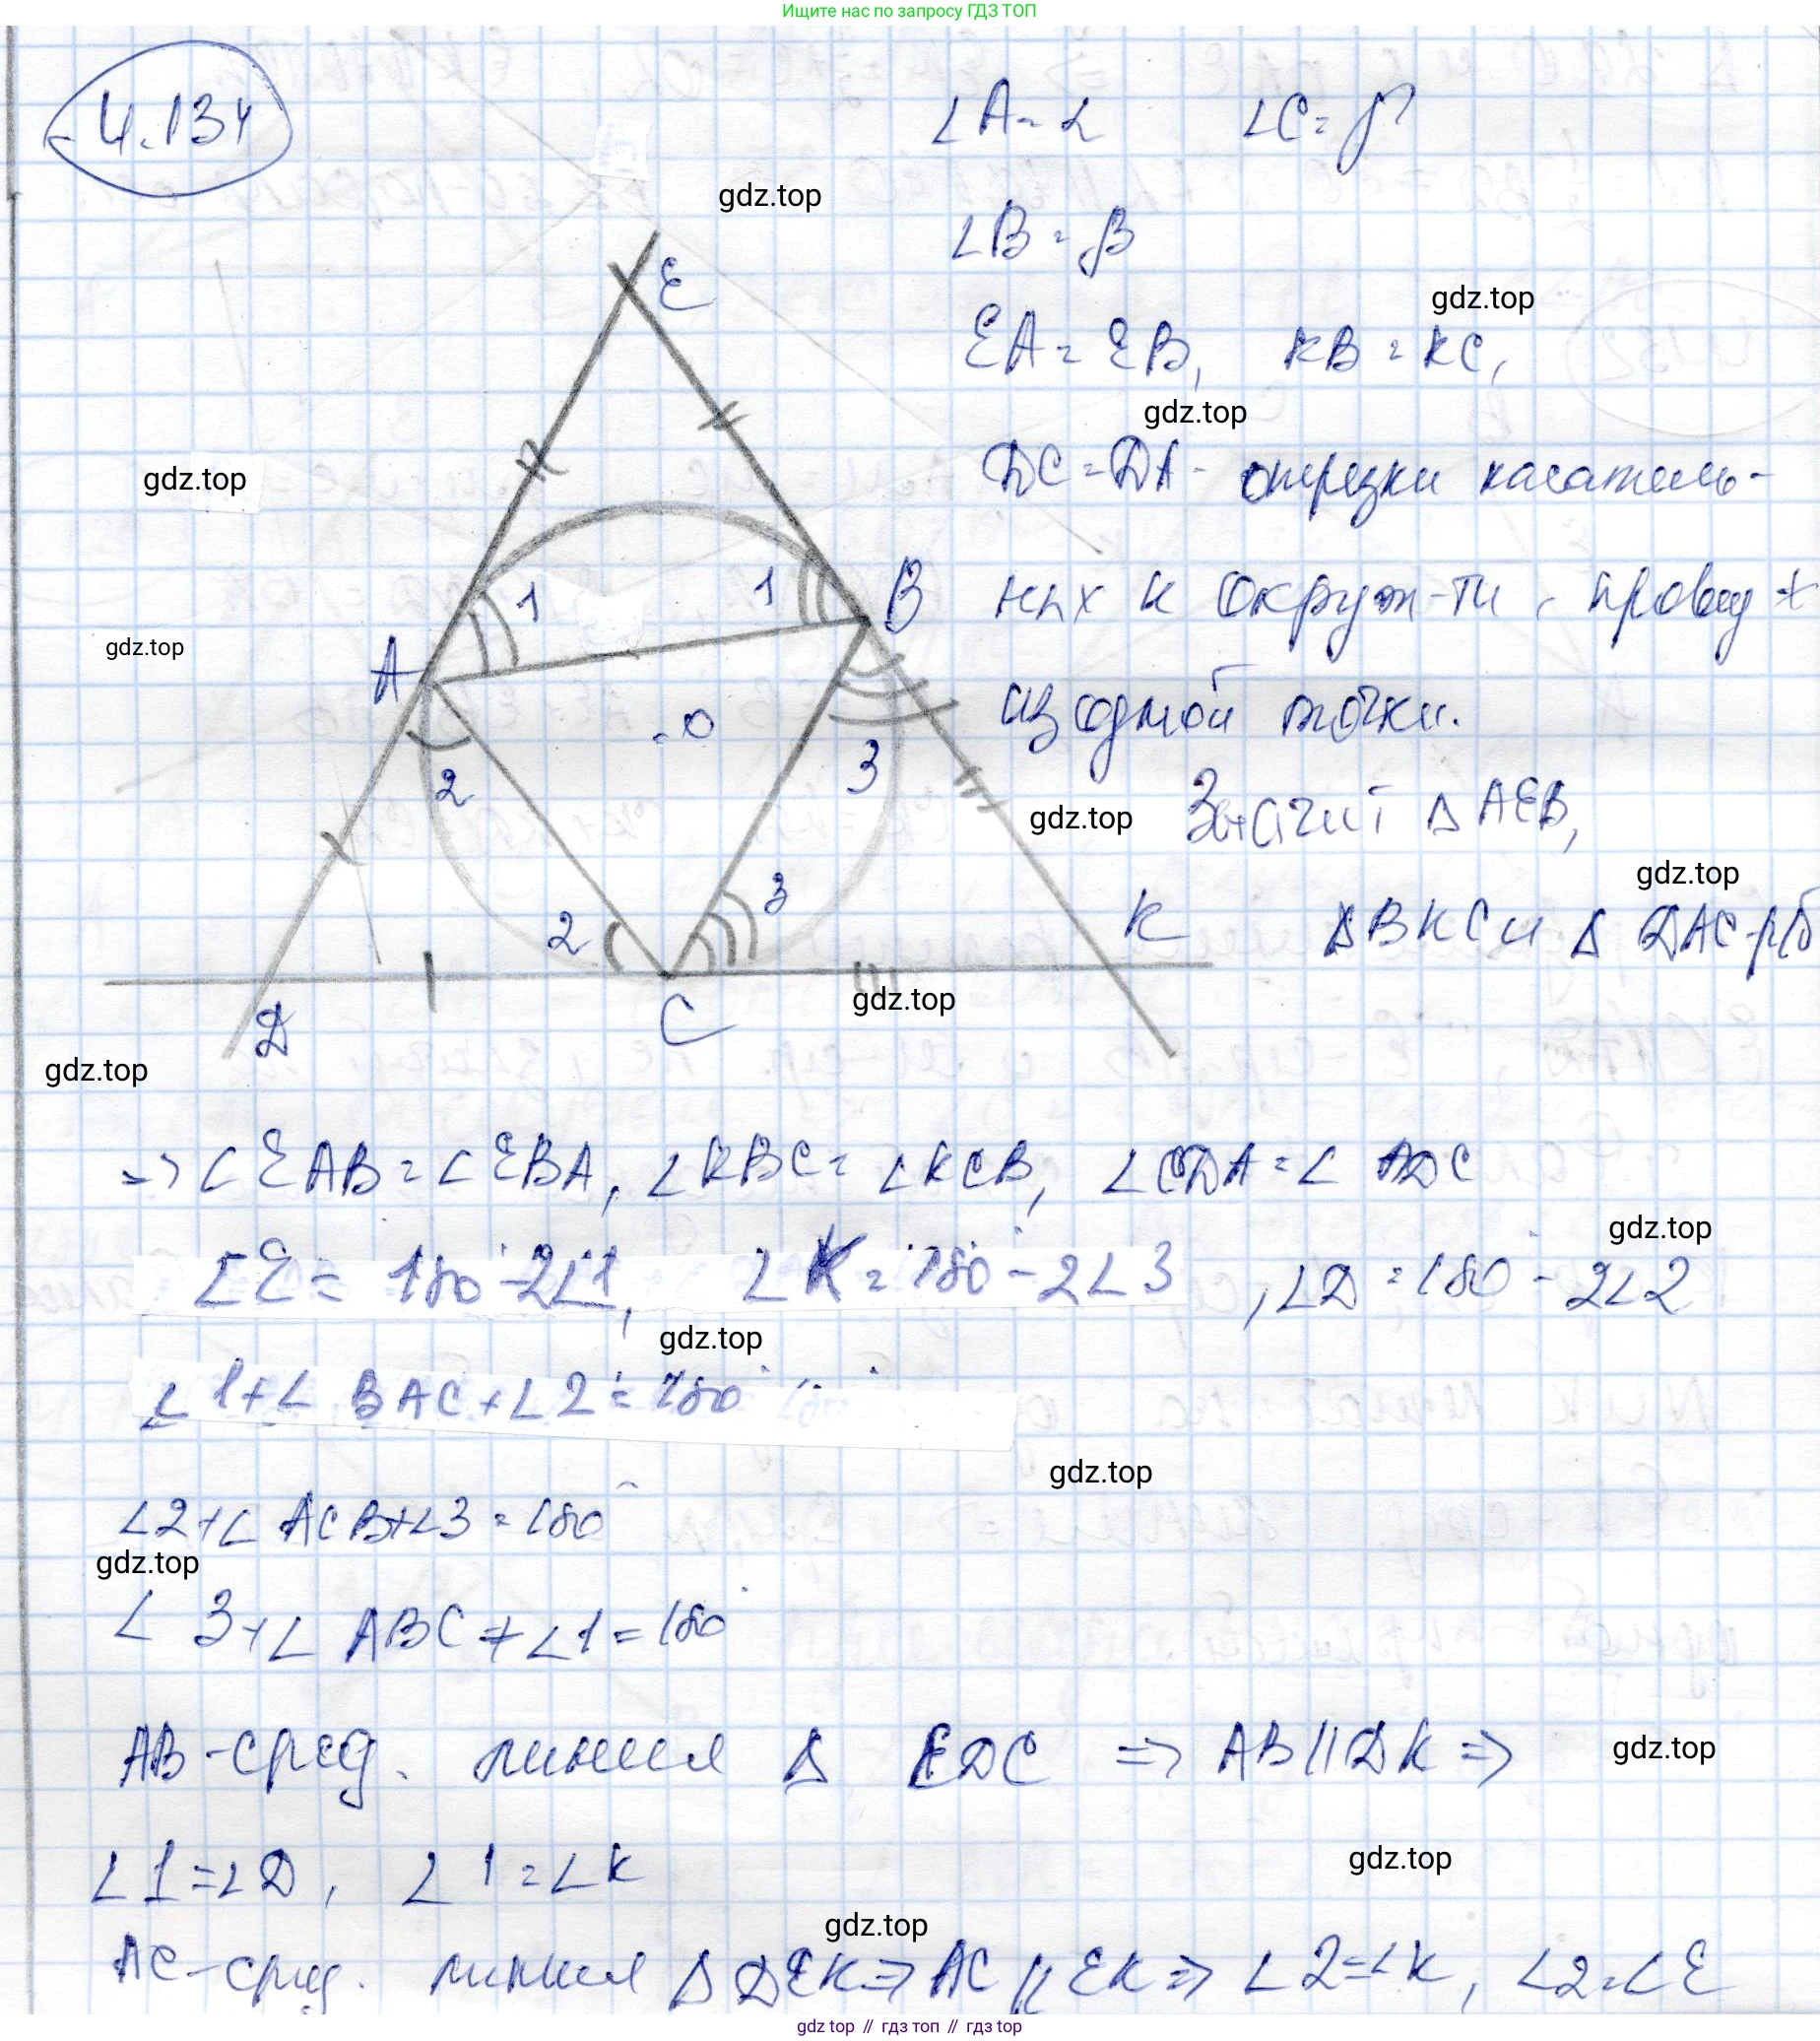 Ищите нас по запросу ГДЗ ТОП
4.134
∠A = α ∠C = γ
gdz.top
∠B = β
gdz.top
E
EA = EB, KB = KC,
gdz.top
DC = DA - отрезки касатель-
gdz.top
ных к окруж-ти, провед
1 1 B
gdz.top
A
из одной точки.
.O
2 3
Значит △ AEB,
gdz.top
gdz.top
2 3
K △ BKC и △ DAC-р/б
gdz.top
D C
gdz.top
=> ∠EAB = ∠EBA, ∠KBC = ∠KCB, ∠CDA = ∠ADC
gdz.top
∠E = 180° - 2∠1, ∠K = 180° - 2∠3, ∠D = 180° - 2∠2
gdz.top
∠1 + ∠BAC + ∠2 = 180°
gdz.top
∠2 + ∠ACB + ∠3 = 180°
gdz.top
∠3 + ∠ABC + ∠1 = 180°
AB - сред. линия △ EDC => AB || DK =>
gdz.top
∠1 = ∠D, ∠1 = ∠K
gdz.top
gdz.top
AC - сред. линия △ DEK => AC || EK => ∠2 = ∠K, ∠2 = ∠E
gdz top // гдз топ // гдз top